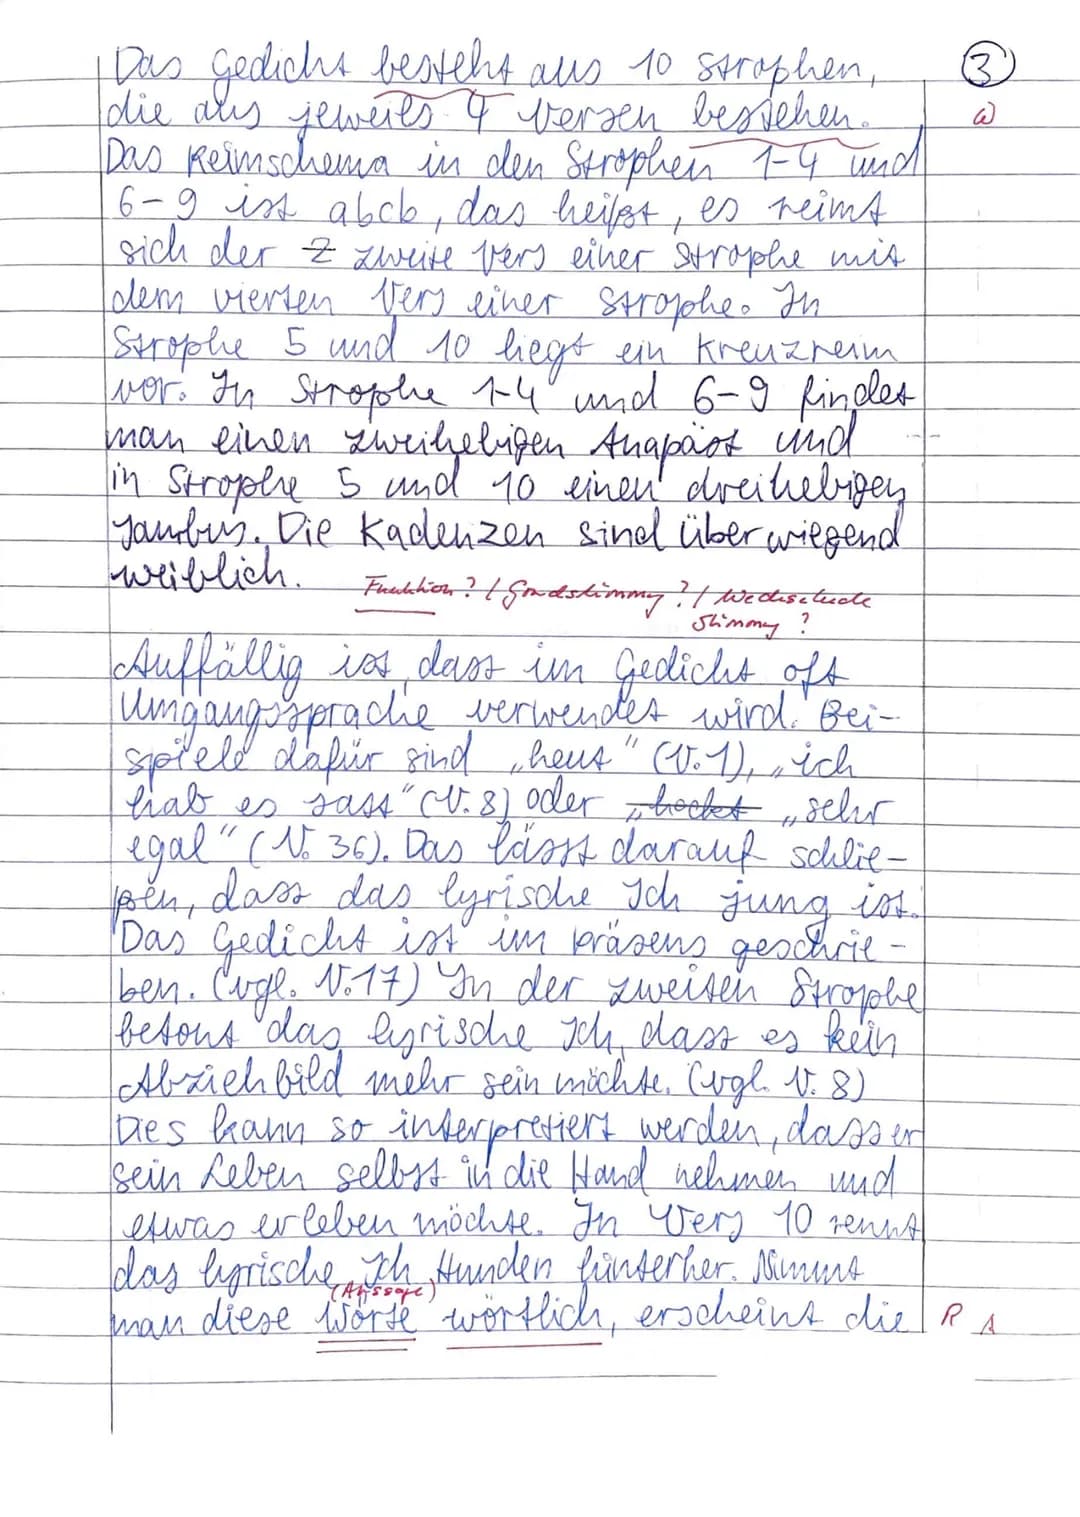 Das Gedicht besteht aus 10 Strophen,
③
die aus jeweils 4 Versen bestehen.
Das Reimschema in den Strophen 1-4 und
6-9 ist abcb, das heißt, es reimt
sich der zweite Vers einer Strophe mit
dem vierten Vers einer Strophe. In
Strophe 5 und 10 liegt ein Kreuzreim
vor. In Strophe 1-4 und 6-9 findet
man einen zweihebigen Anapäst und
in Strophe 5 und 10 einen dreihebigen
Jambus. Die Kadenzen sind überwiegend
weiblich.
Funktion? / Grundstimmung? / Wechselnde
Stimmung?
Auffällig ist, dass im Gedicht oft
Umgangssprache verwendet wird. Bei-
spiele dafür sind „heut" (V.1), „ich
hab es satt" (V.8) oder „hocket „sehr
egal" (V. 36). Das lässt darauf schlie-
ßen, dass das lyrische Ich jung ist.
Das Gedicht ist im Präsens geschrie-
ben. (vgl. V.17) In der zweiten Strophe
betont das lyrische Ich, dass es kein
Abziehbild mehr sein möchte. (vgl. V. 8)
Dies kann so interpretiert werden, dass er
sein Leben selbst in die Hand nehmen und
etwas erleben möchte. In Vers 10 rennt
das lyrische Ich Hunden hinterher. Nimmt
(Aussage)
man diese Worte wörtlich, erscheint die
R A